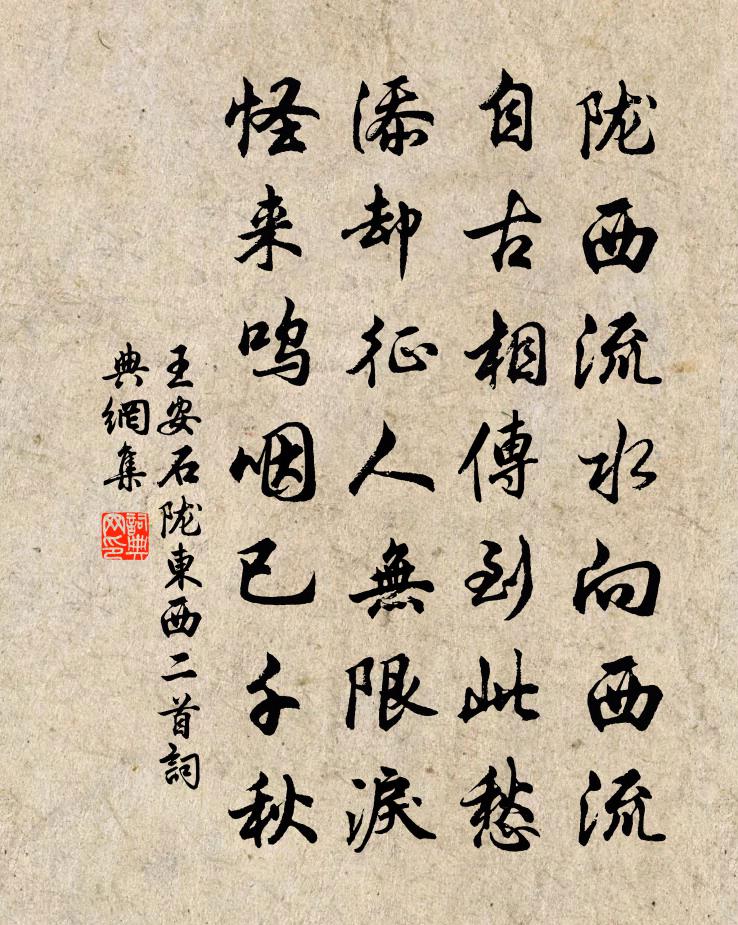 陇西流水向西流
自古相傳到此愁
添却征人無限淚
怪来呜咽已千秋
王安石陇東西二首詞
典網集
詞典网印